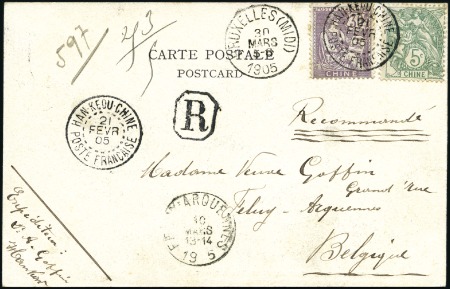 597
CARTE POSTALE
POSTCARD
BRUXELLES (MIDI)
30
MARS
1905
CHINE
HAN-KEOU-CHINE
POSTE FRANÇAISE
FEVR
5
CHINE
HAN-KEOU-CHINE
21
FEVR
05
POSTE FRANÇAISE
R
Recommandé
Madame Veuve Goffin
Grand'Rue
Feluy-Arquennes
Belgique
MARS
13-14
Expéditeur
Goffin
Hankow